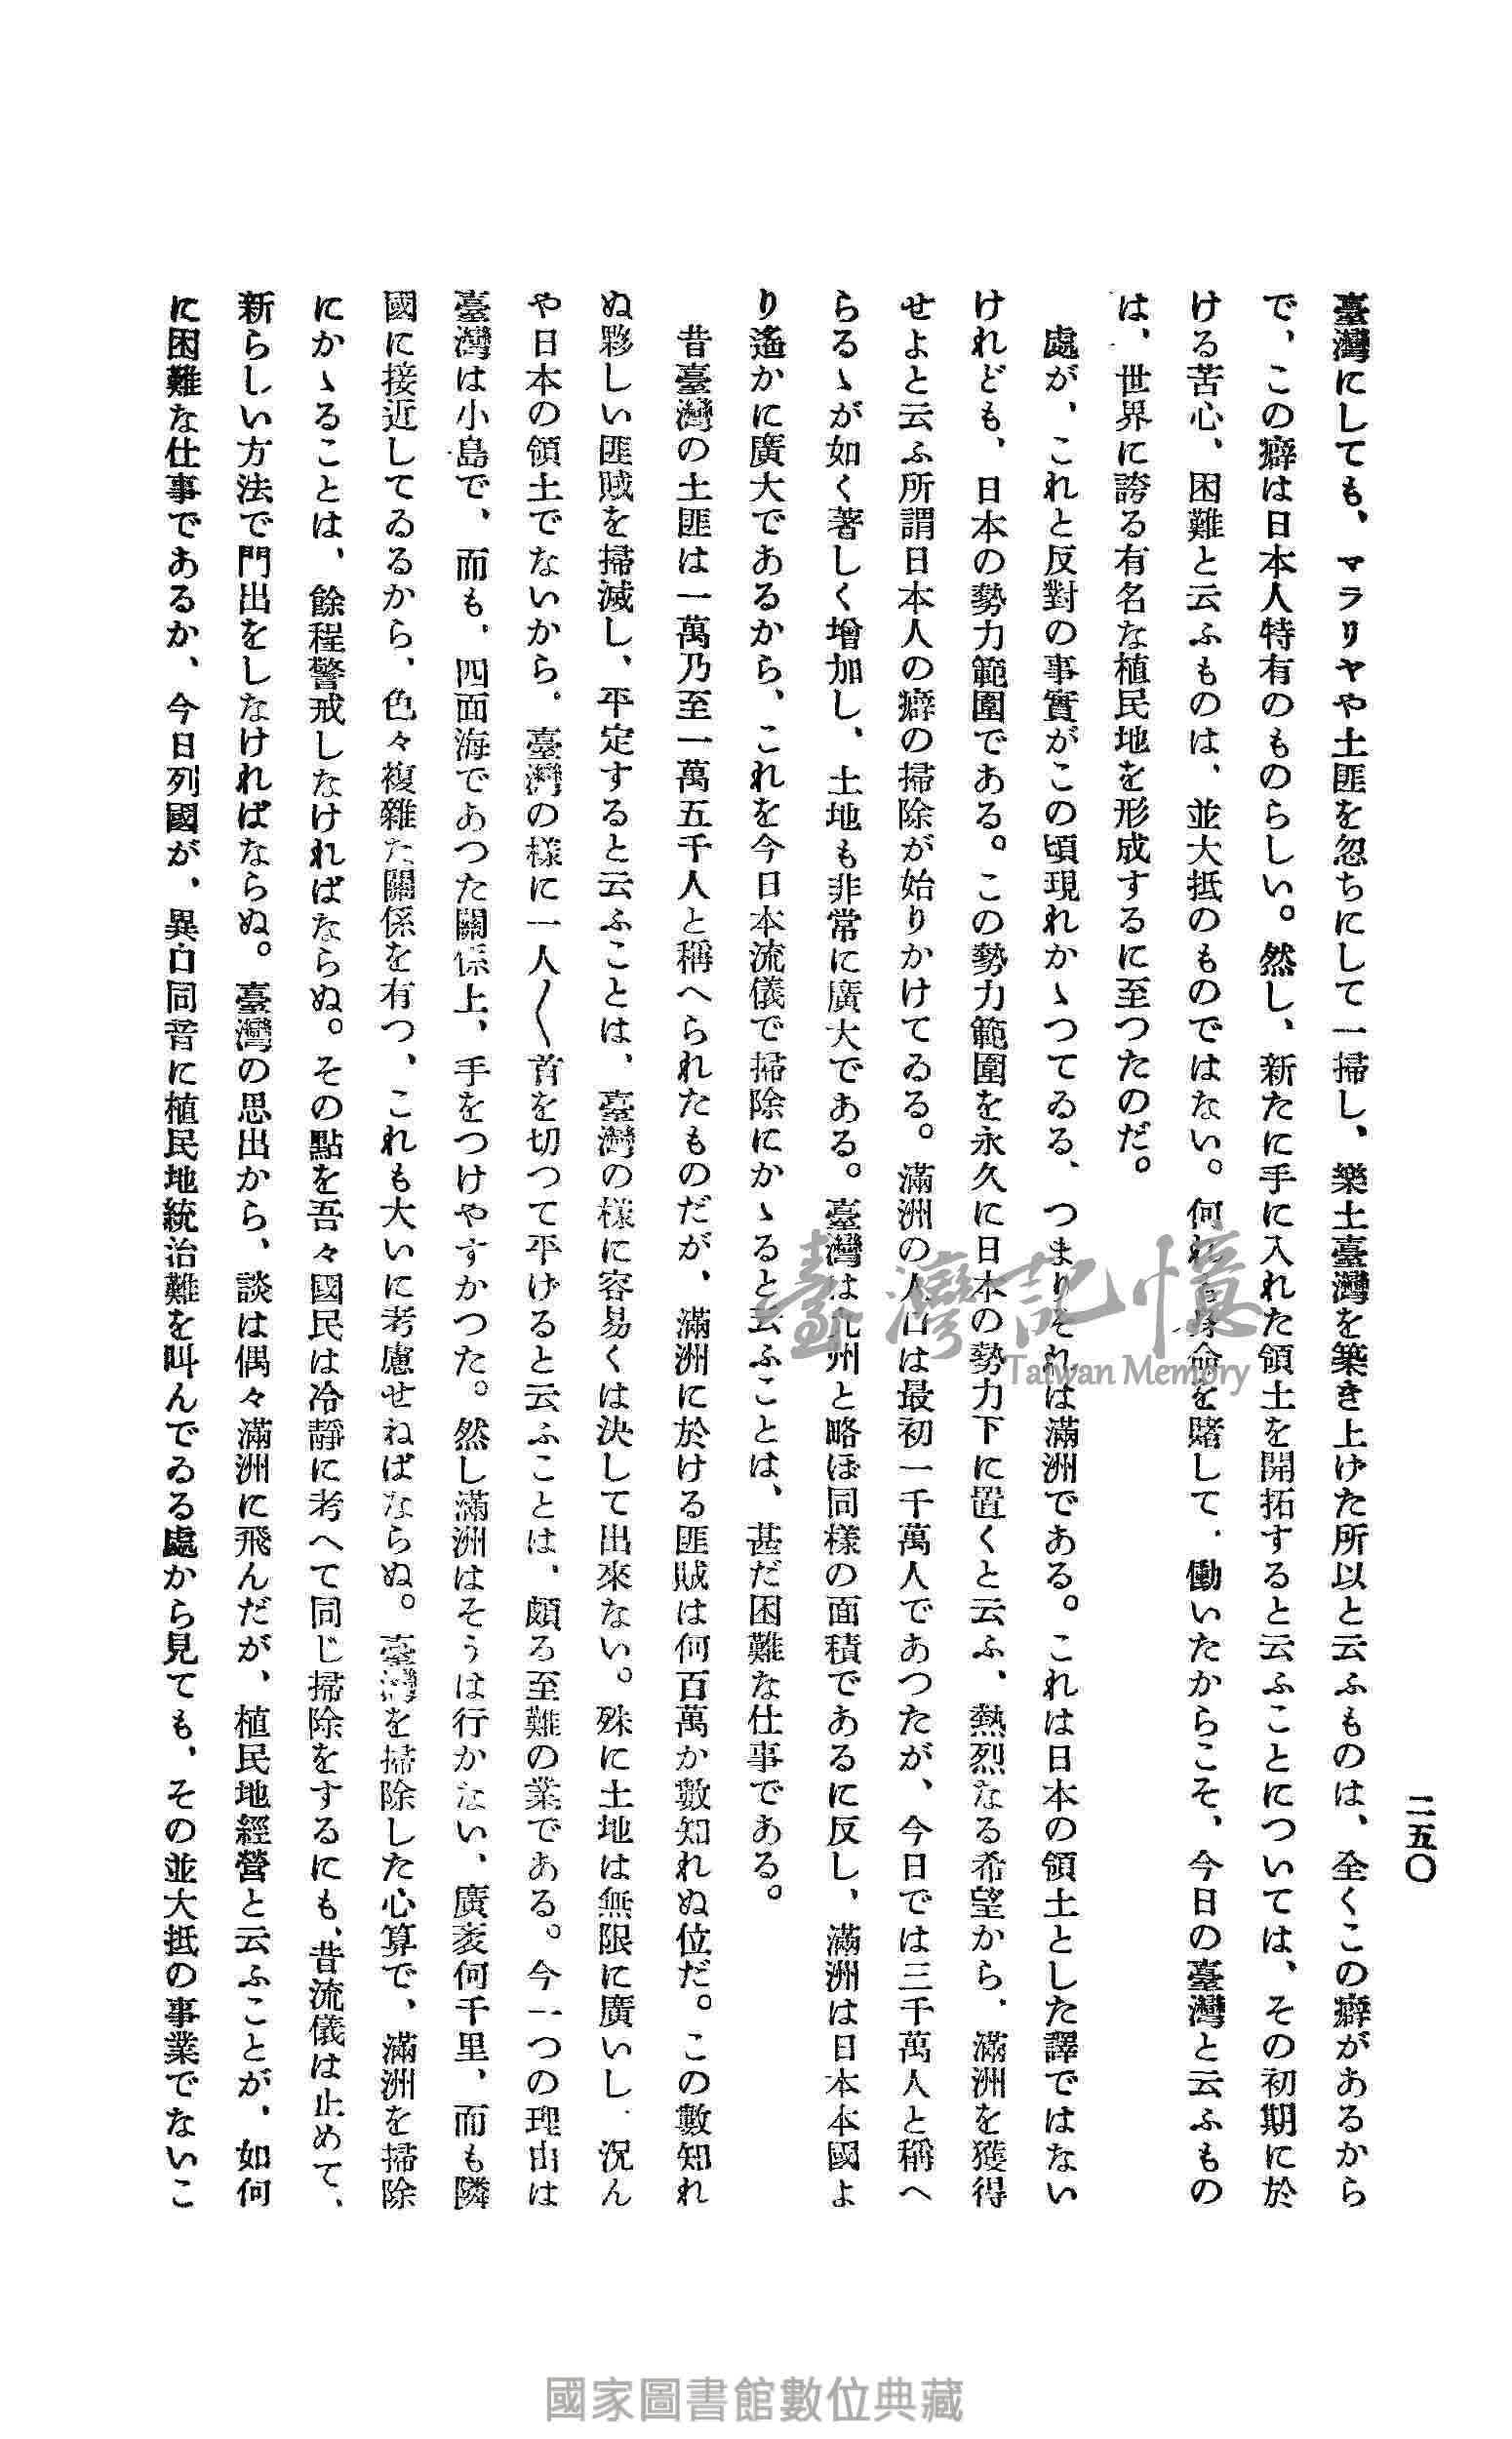 二五〇
臺灣にしても、マラリヤや土匪を忽ちにして一掃し、樂土臺灣を築き上げた所以と云ふものは、全くこの癖があるから
で、この癖は日本人特有のものらしい。然し、新たに手に入れた領土を開拓すると云ふことについては、その初期に於
ける苦心、困難と云ふものは、並大抵のものではない。何れ身命を賭して、働いたからこそ、今日の臺灣と云ふもの
は、世界に誇る有名な植民地を形成するに至つたのだ。
處が、これと反對の事實がこの頃現れかゝつてゐる、つまりそれは滿洲である。これは日本の領土とした譯ではない
けれども、日本の勢力範圍である。この勢力範圍を永久に日本の勢力下に置くと云ふ、熱烈なる希望から、滿洲を獲得
せよと云ふ所謂日本人の癖の掃除が始りかけてゐる。滿洲の人口は最初一千萬人であつたが、今日では三千萬人と稱へ
らるゝが如く著しく增加し、土地も非常に廣大である。臺灣は九州と略ぼ同樣の面積であるに反し、滿洲は日本本國よ
り遙かに廣大であるから、これを今日本流儀で掃除にかゝると云ふことは、甚だ困難な仕事である。
昔臺灣の土匪は一萬乃至一萬五千人と稱へられたものだが、滿洲に於ける匪賊は何百萬か數知れぬ位だ。この數知れ
ぬ夥しい匪賊を掃滅し、平定すると云ふことは、臺灣の樣に容易くは決して出來ない。殊に土地は無限に廣いし、況ん
や日本の領土でないから。臺灣の樣に一人〱首を切つて平げると云ふことは、頗る至難の業である。今一つの理由は
臺灣は小島で、而も、四面海であつた關係上、手をつけやすかつた。然し滿洲はそうは行かない、廣袤何千里、而も隣
國に接近してゐるから、色々複雜た關係を有つ、これも大いに考慮せねばならぬ。臺灣を掃除した心算で、滿洲を掃除
にかゝることは、餘程警戒しなければならぬ。その點を吾々國民は冷靜に考へて同じ掃除をするにも、昔流儀は止めて、
新らしい方法で門出をしなければならぬ。臺灣の思出から、談は偶々滿洲に飛んだが、植民地經營と云ふことが、如何
に困難な仕事であるか、今日列國が、異口同音に植民地統治難を叫んでゐる處から見ても、その並大抵の事業でないこ
臺灣記憶
Taiwan Memory
國家圖書館數位典藏